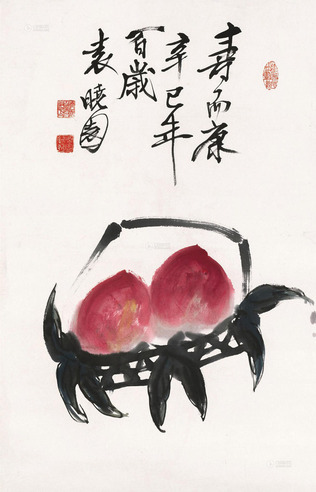 寿而康
辛巳年
百歲
袁曉園